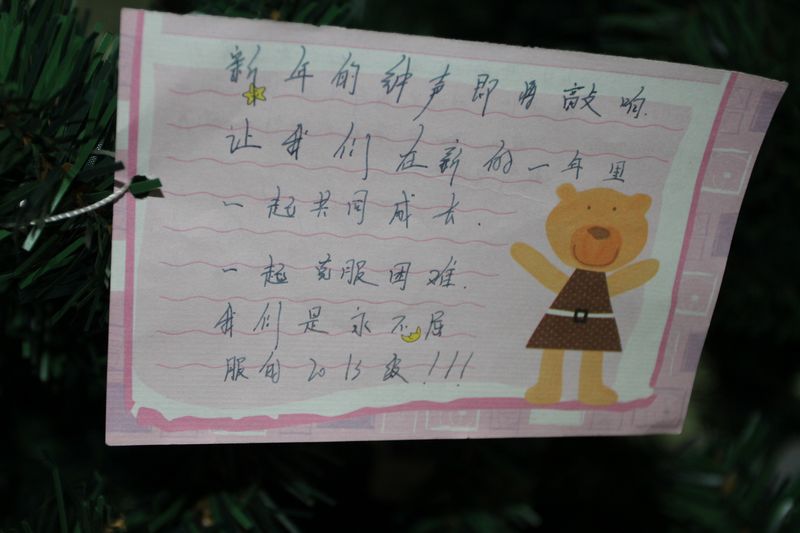 新年的钟声即再敲响.
让我们在新的一年里
一起共同成长.
一起克服困难.
我们是永不屈
服的2013级!!!